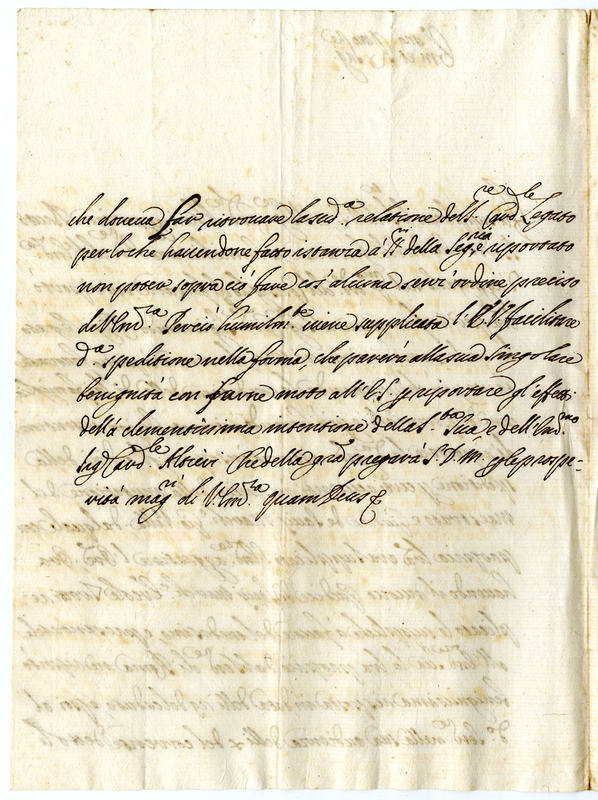 che doueua far ritrouare la sud.ª relatione dell S.re Card.le Legato
perloche hauendone fatto istanza á della Seg.ria é riportato
non poter sopra ció fare cos' alcuna senz' ordine preciso
di V. Em.za Perció humilm.te uiene supplicata l' E. V. facilitare
d.ª speditione nella forma, che parerá alla sua singolare
benignitá con farne moto all' E. S. p riportare gl' effetti
della clementissima intentione della S.tá Sua, e dell' Em.mo
Sig.r Card.le Altieri Che della gra pregará S. D. M. p le prospe-
ritá mag.ri di V. Em.za quam Deus &